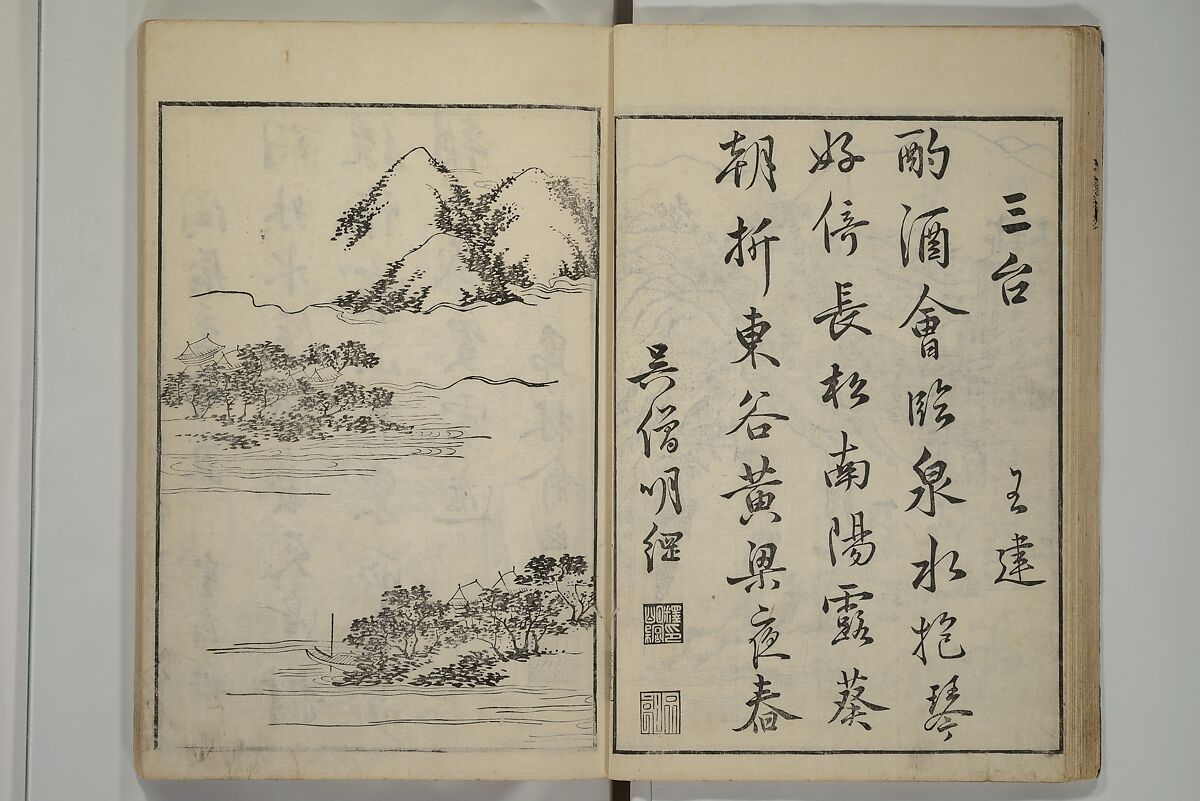 三台　王建
酌酒會臨泉水抱琴
好倚長松南陽露葵
朝折東谷黄梁夜舂
吳僧明綱